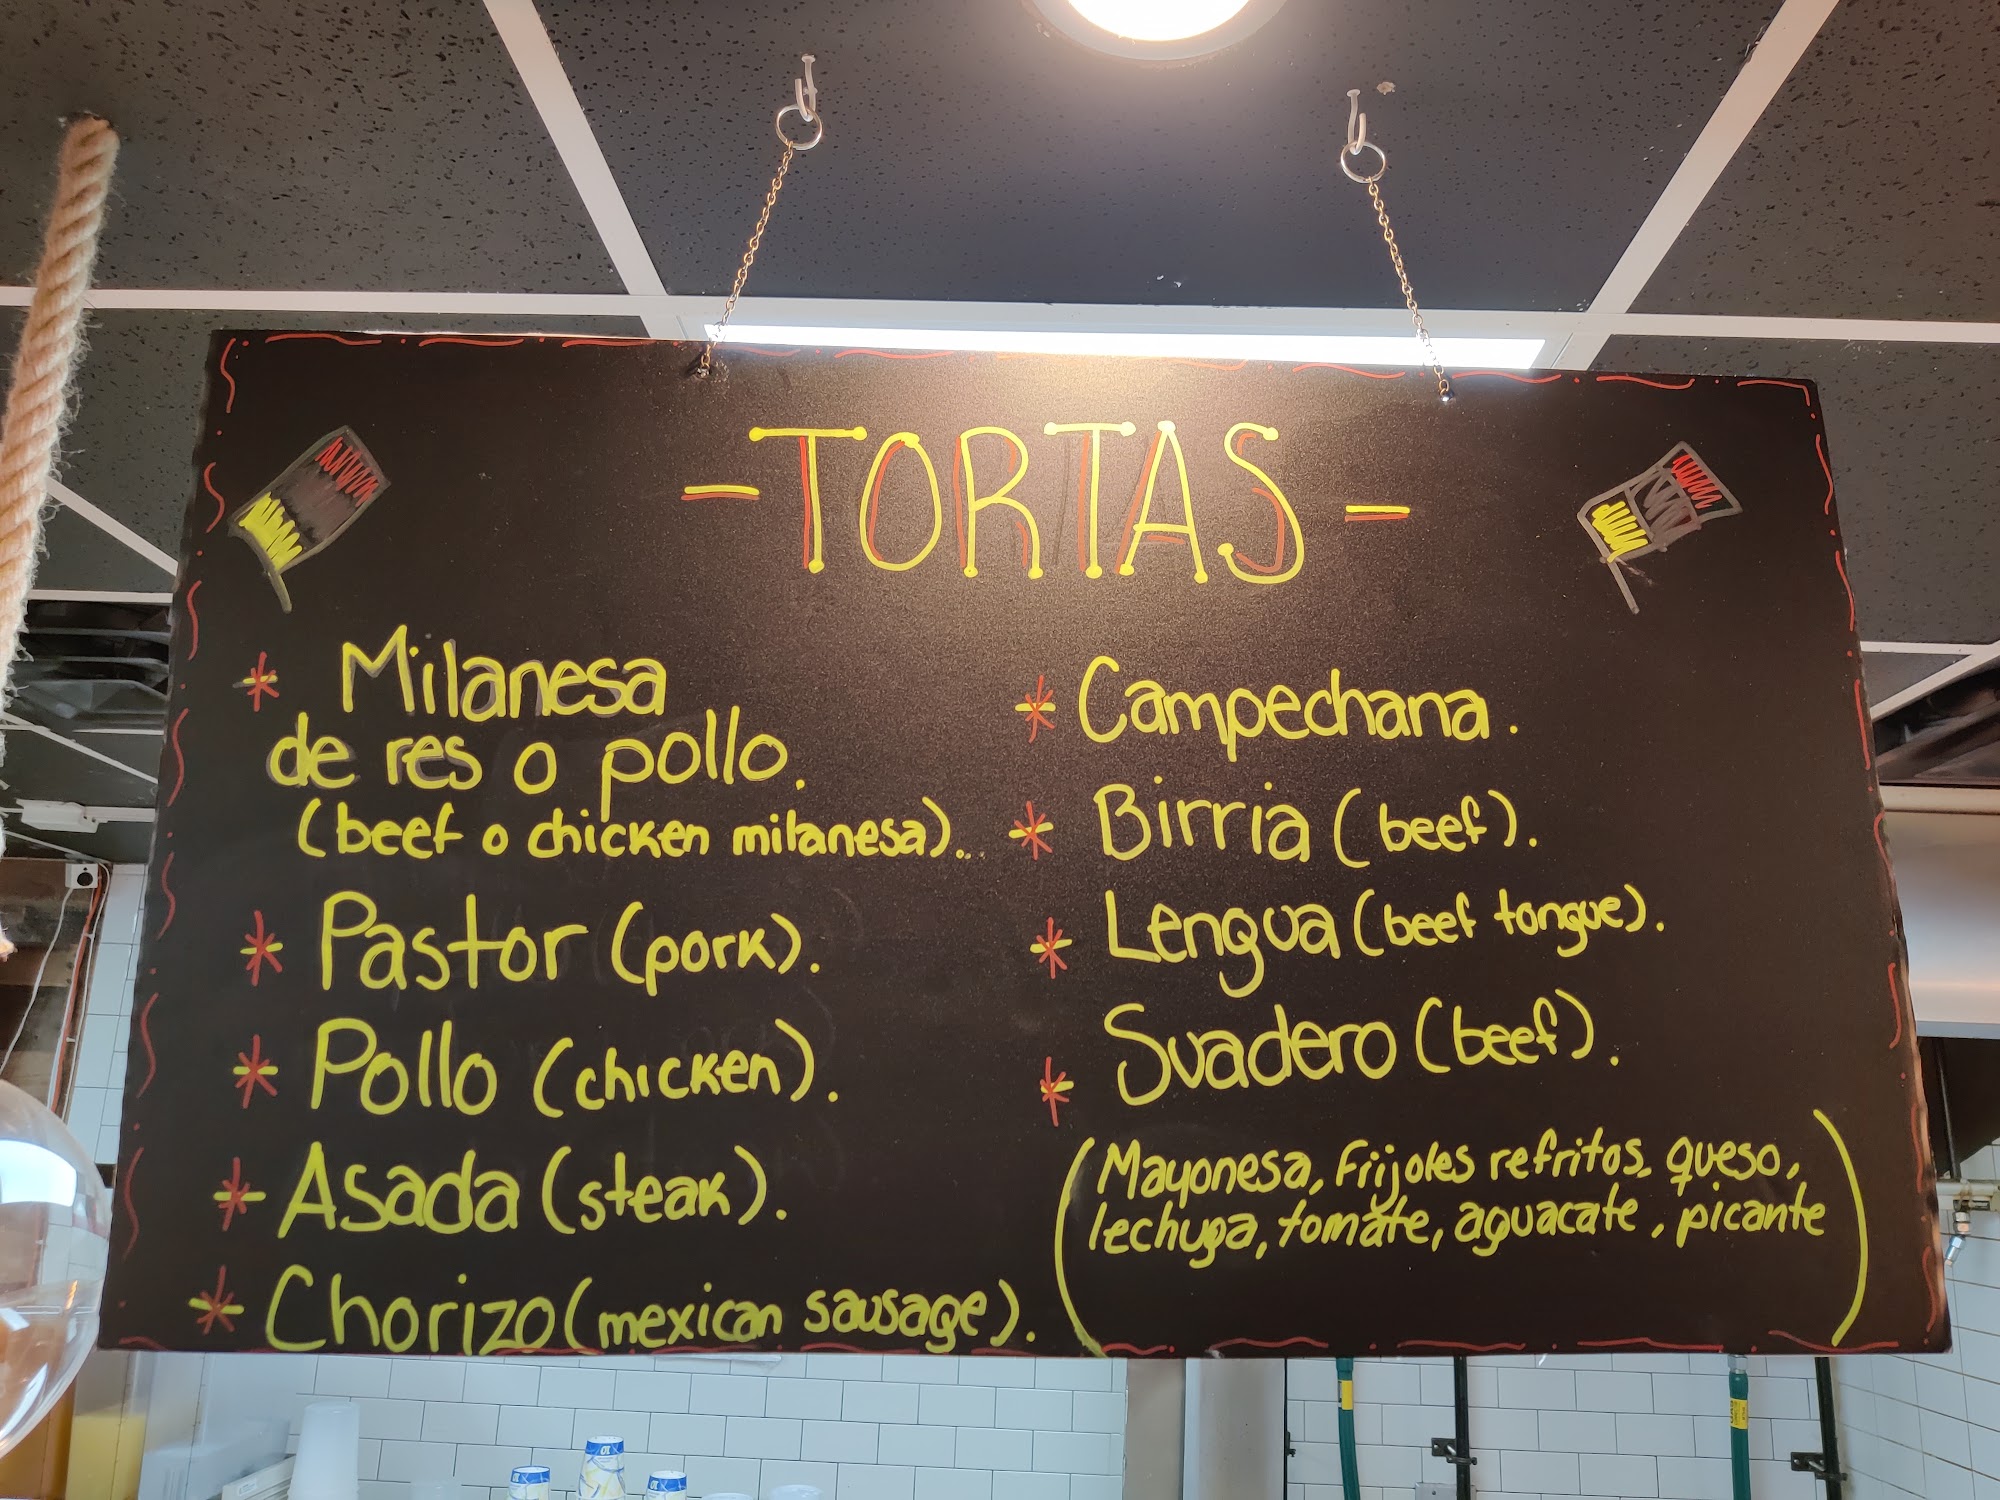 -TORTAS-
* Milanesa
de res o pollo.
(beef o chicken milanesa)...
* Pastor (pork).
* Pollo (chicken).
* Asada (steak).
* Chorizo (mexican sausage).
* Campechana.
* Birria (beef).
* Lengua (beef tongue).
* Suadero (beef).
(Mayonesa, Frijoles refritos, queso,
lechuga, tomate, aguacate, picante)